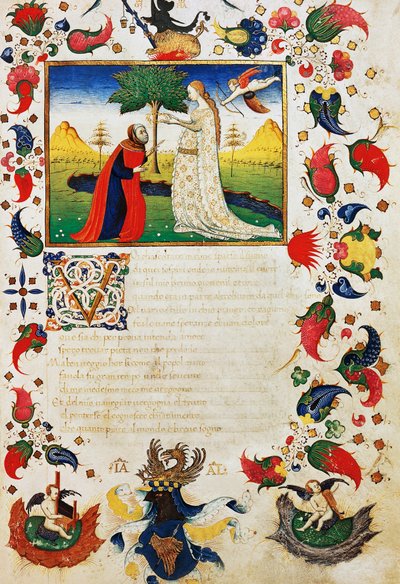 V
sparse il suono
sospiri
in sul mio primo giovenil errore
Quand era in parte altrhuom da quel chi sono
Del vario stile in chio piango et ragiono
fra le vane speranze el van dolore
ove sia chi per prova intenda amore
Spero trovar pieta non che perdono
Ma ben veggio hor si come al popol tutto
favola fui gran tempo onde sovente
di me medesmo meco mi vergogno
Et del mio vaneggiar vergogna e il frutto
el pentirse el cognoscer chiaramente
che quanto piace al mondo e breve sogno
IA AL